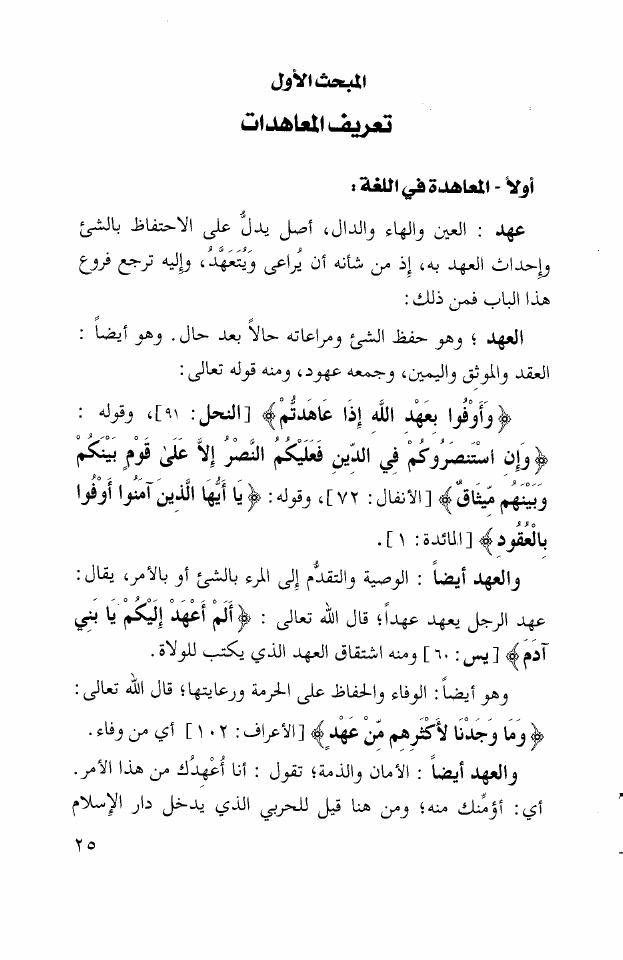 المبحث الأول
تعريف المعاهدات
أولاً - المعاهدة في اللغة :
عهد : العين والهاء والدال، أصل يدلُّ على الاحتفاظ بالشئ
وإحداث العهد به، إذ من شأنه أن يُراعى ويُتَعَهَّدُ، وإليه ترجع فروع
هذا الباب فمن ذلك:
العهد ؛ وهو حفظ الشئ ومراعاته حالاً بعد حال. وهو أيضاً :
العقد والموثق واليمين، وجمعه عهود، ومنه قوله تعالى:
﴿وَأَوْفُوا بِعَهْدِ اللَّهِ إِذَا عَاهَدتُّمْ﴾ [النحل: ٩١]، وقوله :
﴿وَإِن اسْتَنصَرُوكُمْ فِي الدِّينِ فَعَلَيْكُمُ النَّصْرُ إِلاَّ عَلَىٰ قَوْمٍ بَيْنَكُمْ
وَبَيْنَهُم مِّيثَاقٌ﴾ [الأنفال: ٧٢]، وقوله: ﴿يَا أَيُّهَا الَّذِينَ آمَنُوا أَوْفُوا
بِالْعُقُودِ﴾ [المائدة: ١].
والعهد أيضاً : الوصية والتقدُّم إلى المرء بالشئ أو بالأمر، يقال:
عهد الرجل يعهد عهداً؛ قال الله تعالى : ﴿أَلَمْ أَعْهَدْ إِلَيْكُمْ يَا بَنِي
آدَمَ﴾ [يس: ٦٠] ومنه اشتقاق العهد الذي يكتب للولاة.
وهو أيضاً: الوفاء والحفاظ على الحرمة ورعايتها؛ قال الله تعالى:
﴿وَمَا وَجَدْنَا لأَكْثَرِهِم مِّنْ عَهْدٍ﴾ [الأعراف: ١٠٢] أي من وفاء.
والعهد أيضاً : الأمان والذمة؛ تقول : أنا أُعْهِدُك من هذا الأمر.
أي: أؤمِّنك منه؛ ومن هنا قيل للحربي الذي يدخل دار الإسلام
٢٥